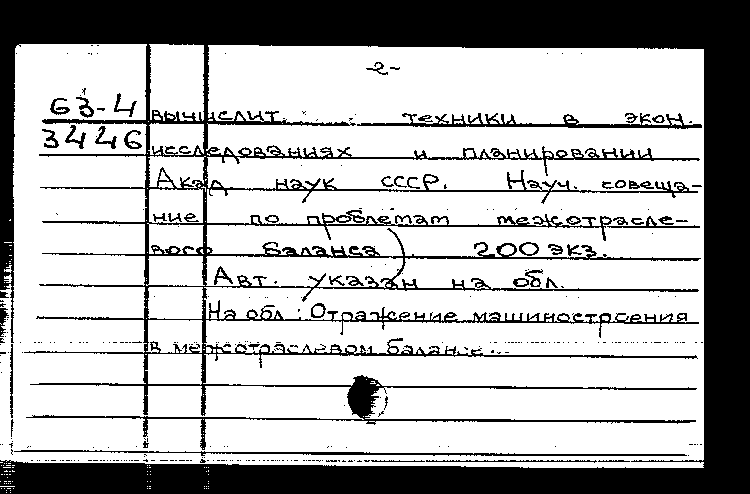 -2-
63-4
3446
вычислит. техники в экон.
исследованиях и планировании
Акад. наук СССР. Науч. совеща-
ние по проблемам межотрасле-
вого баланса). 200 экз.
Авт. указан на обл.
На обл.: Отражение машиностроения
в межотраслевом балансе...